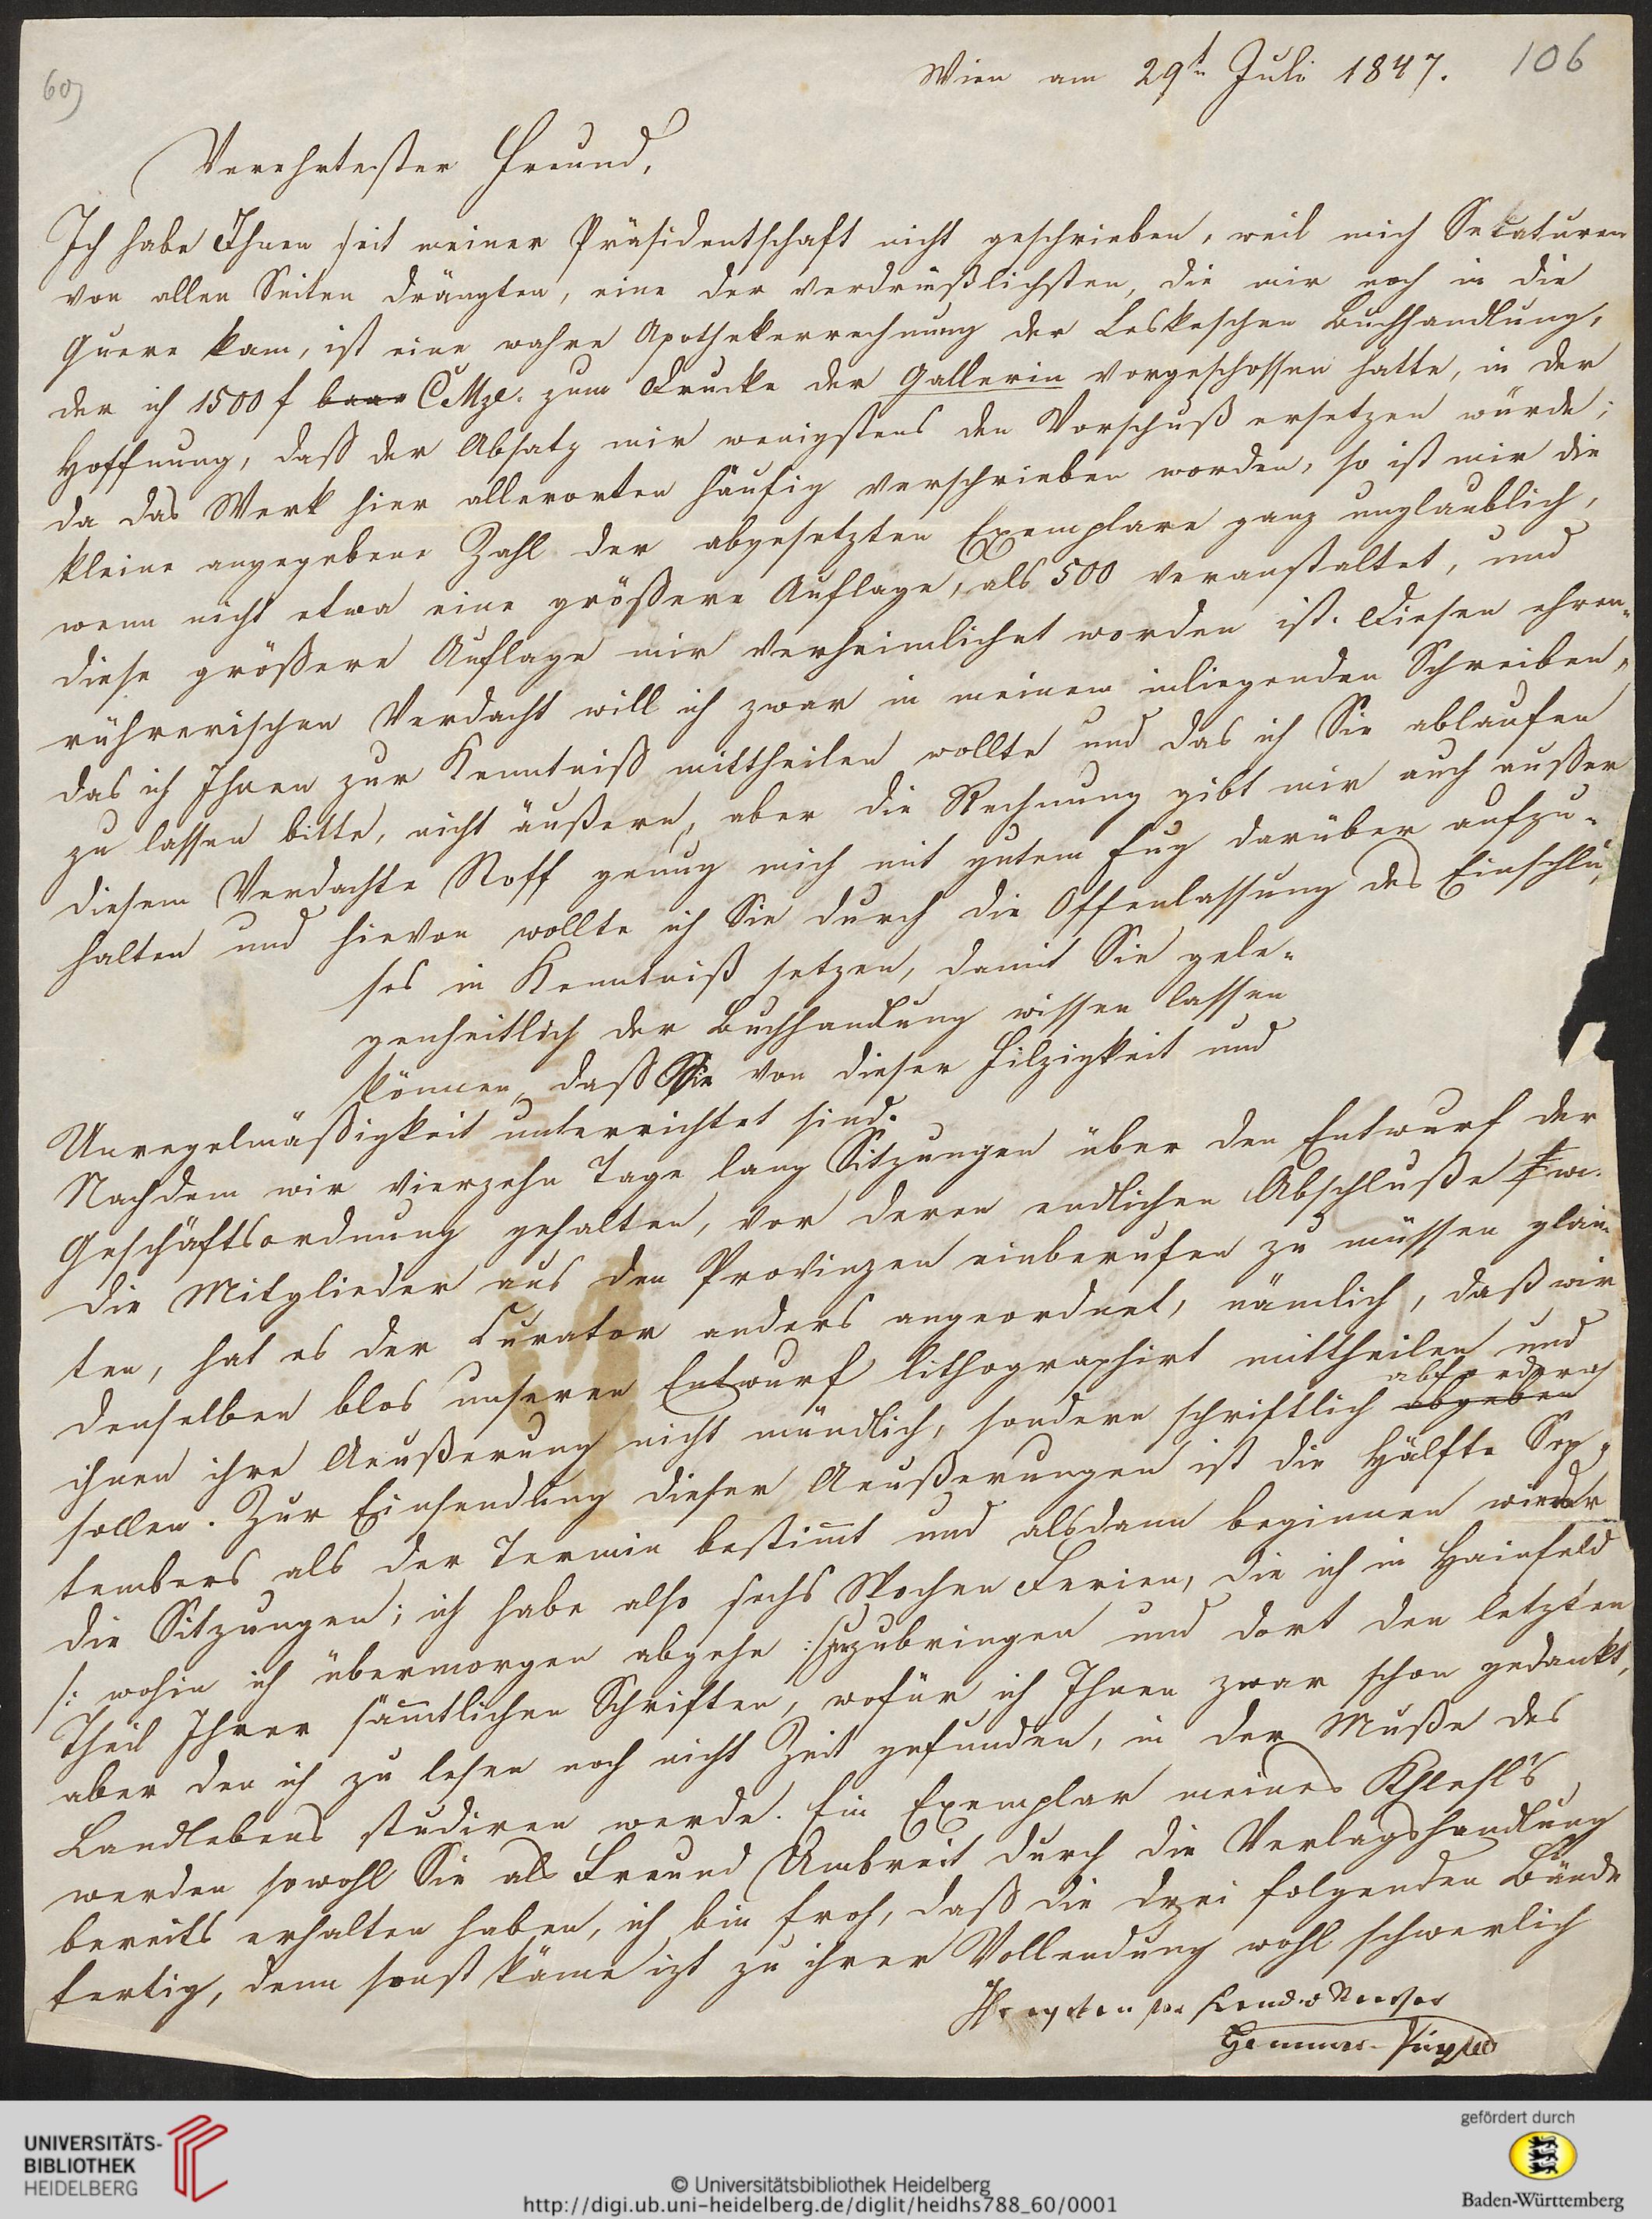 60)
Wien am 29t Juli 1847. 106
Verehrtester Freund,
Ich habe Ihnen seit meiner Präsidentschaft nicht geschrieben, weil mich Sekaturen
von allen Seiten drängten, eine der verdrüßlichsten, die mir noch in die
Quere kam, ist eine wahre Apothekerrechnung der Leskeschen Buchhandlung,
der ich 1500 f baar CMze. zum Drucke der Gallerin vorgeschossen hatte, in der
Hoffnung, daß der Absatz mir wenigstens den Vorschuß ersetzen würde;
da das Werk hier allerorten häufig verschrieben worden, so ist mir die
kleine angegebene Zahl der abgesetzten Exemplare ganz unglaublich,
wenn nicht etwa eine größere Auflage, als 500 veranstaltet, und
diese größere Auflage mir verheimlichet worden ist. Diesen ehren-
rührerischen Verdacht will ich zwar in meinem inliegenden Schreiben,
das ich Ihnen zur Kenntniß mittheilen wollte und das ich Sie ablaufen
zu lassen bitte, nicht äußern, aber die Rechnung gibt mir auch außer
diesem Verdachte Stoff genug mich mit gutem Fug darüber aufzu-
halten und hievon wollte ich Sie durch die Offenlassung des Einschlu-
ses in Kenntniß setzen, damit Sie gele-
genheitlich der Buchhandlung wissen lassen
können, daß Sie von dieser Filzigkeit und
Unregelmäßigkeit unterrichtet sind.
Nachdem wir vierzehn Tage lang Sitzungen über den Entwurf der
Geschäftsordnung gehalten, vor deren endlichen Abschluße wir
die Mitglieder aus den Provinzen einberufen zu müssen glaub-
ten, hat es der Curator anders angeordnet, nämlich, daß wir
denselben blos unseren Entwurf lithographirt mittheilen und
abfordern
ihnen ihre Aeußerung nicht mündlich, sondern schriftlich abgeben
sollen. Zur Einsendung dieser Aeußerungen ist die Hälfte Sep-
tembers als der Termin bestimt und alsdann beginnen wieder
die Sitzungen; ich habe also sechs Wochen Ferien, die ich in Hainfeld
/: wohin ich übermorgen abgehe :/ zuzubringen und dort den letzten
Theil Ihrer sämtlichen Schriften, wofür ich Ihnen zwar schon gedankt,
aber den ich zu lesen noch nicht Zeit gefunden, in der Muße des
Landlebens studiren werde. Ein Exemplar meines Khlesl's
werden sowohl Sie als Freund Umbreit durch die Verlagshandlung
bereits erhalten haben, ich bin froh, daß die drei folgenden Bände
fertig, denn sonst käme izt zu ihrer Vollendung wohl schwerlich
Hammer-Purgstall
UNIVERSITÄTS-
BIBLIOTHEK
HEIDELBERG
© Universitätsbibliothek Heidelberg
http://digi.ub.uni-heidelberg.de/diglit/heidhs788_60/0001
gefördert durch
Baden-Württemberg